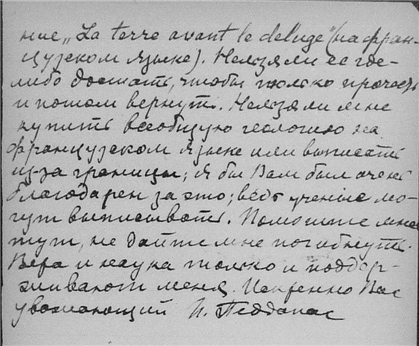 ние „La terre avant le deluge“ (на фран-
цузском языке). Нельзя ли ее где-
либо достать, чтобы только прочесть
и потом вернуть. Нельзя ли мне
купить всеобщую геологию на
французском языке или выписать
из-за границы; я бы Вам был очень
благодарен за это; ведь ученые мо-
гут выписывать. Помогите мне
тут, не дайте мне погибнуть.
Вера и наука только и поддер-
живают меня. Искренно Вас
уважающий